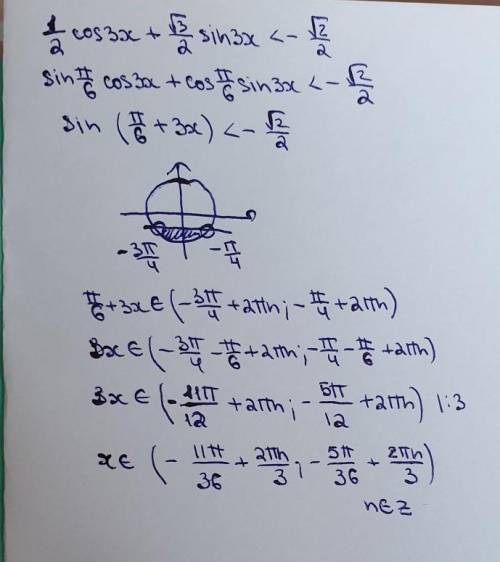 1/2 cos3x + √3/2 sin3x < - √2/2
sin π/6 cos3x + cos π/6 sin3x < - √2/2
sin (π/6 + 3x) < - √2/2
- 3π/4 - π/4
π/6 + 3x ∈ (- 3π/4 + 2πn; - π/4 + 2πn)
3x ∈ (- 3π/4 - π/6 + 2πn; - π/4 - π/6 + 2πn)
3x ∈ (- 11π/12 + 2πn; - 5π/12 + 2πn) |:3
x ∈ (- 11π/36 + 2πn/3; - 5π/36 + 2πn/3)
n∈Z